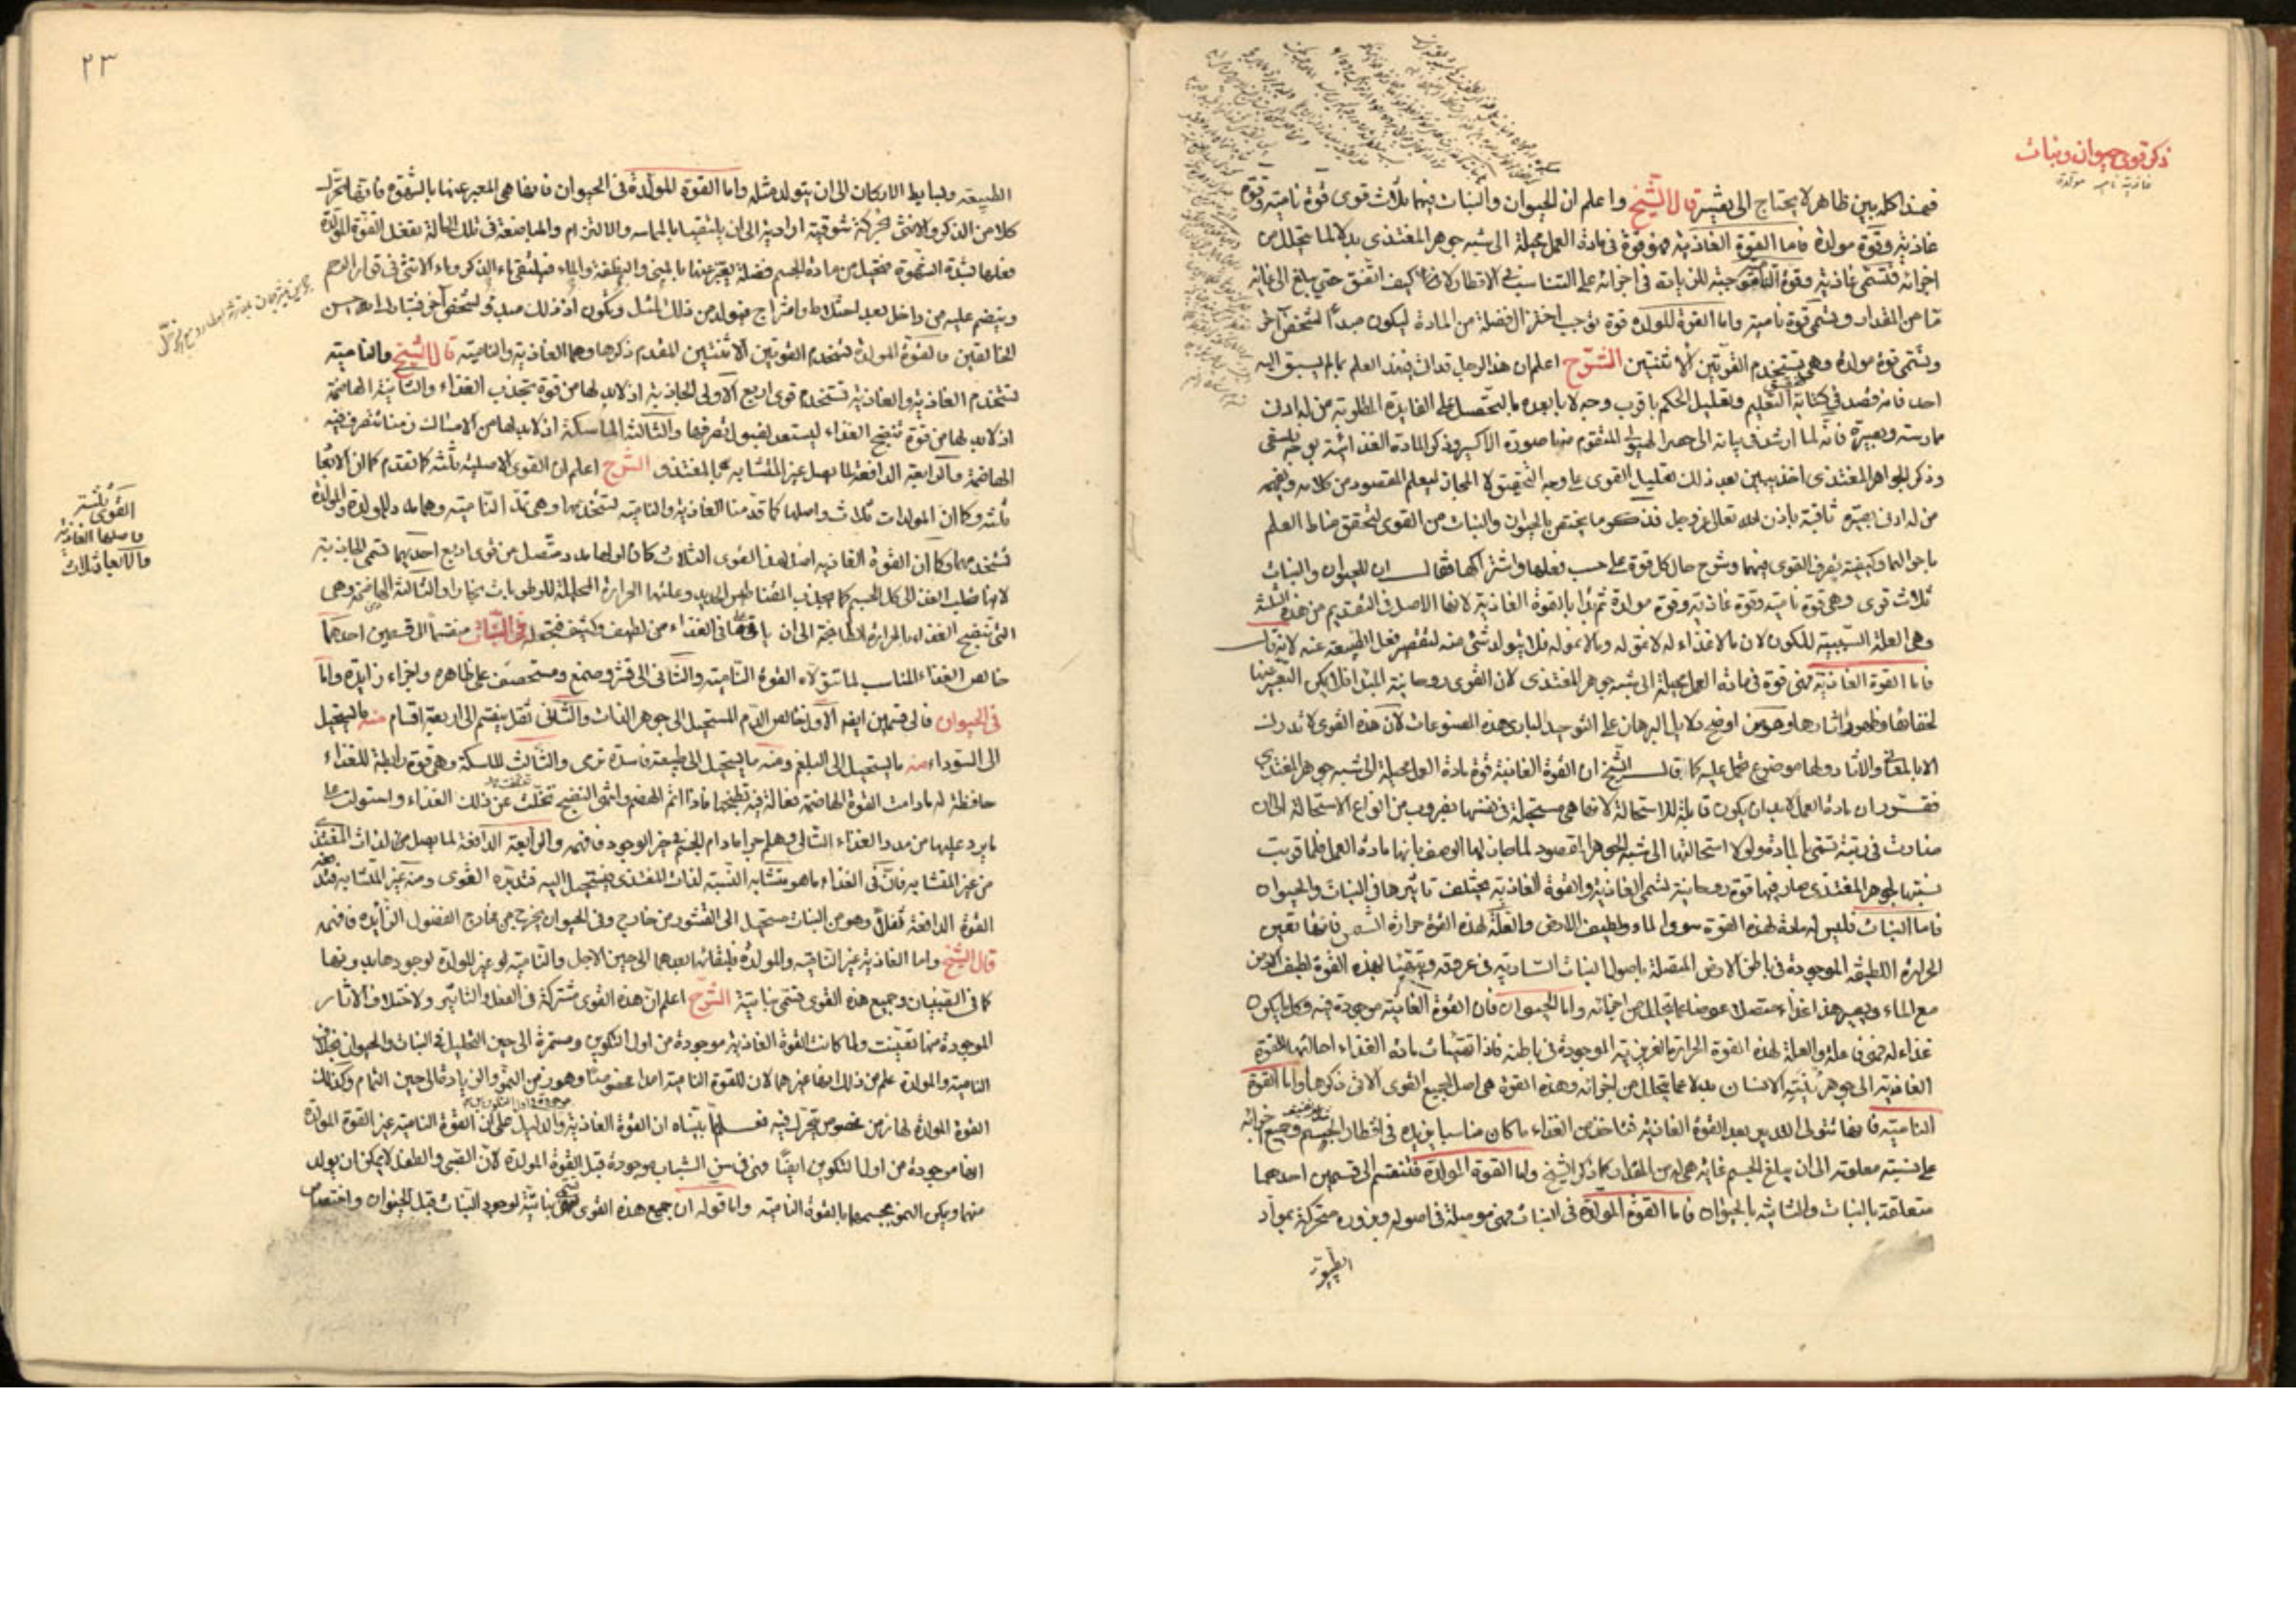 ذكر قوى حيوان ونبات
غاذية نامية مولدة
فهذا كله بين ظاهر لا يحتاج الى تفسير قال الشيخ واعلم ان الحيوان والنبات فيهما ثلاث قوى قوة نامية وقوة
غاذية وقوة مولدة فاما القوة الغاذية فهو قوة في مادة العمل محيلة الى شبه جوهر المغتذى بدلا لما يتحلل من
اجزائه فتسمى غاذية وقوة للزيادة في اجزائه على التناسب في الاقطار لا كيف اتفق حتى يبلغ الى غاية
ما من المقدار وتسمى قوة نامية واما القوة المولدة قوة توجب اختزال فضلة من المادة ليكون مبدأ لشخص آخر
وتسمى قوة مولدة وهي تستخدم القوتين الاثنتين الشرح اعلم ان هذا الرجل قد اتى في هذا العلم بما لم يسبق اليه
احد فانه قصد في كتابه التعليم وتعليل الحكم باقرب وجه لا بابعده ما لتحصل على الفايدة المطلوبة من له ادنى
ممارسة وبصيرة فانه لما ارشد في بيانه الى حصر الهيولى المتقوم منها صورة الاكسير وذكر المادة الغذائية
وذكر الجواهر المغتذى اخذ يبين بعد ذلك تعليل القوى على وجه التحقيق لا المجاز ليعلم المقصود من كلامه ويفهمه
من له ادنى بصيرة ثاقبة باذن الله تعالى عز وجل فذكر ما يختص بالحيوان والنبات من القوى لتحقق مناط العلم
باحوالها وكيفية تصرف القوى فيهما وشرح حال كل قوة على حسب فعلها واشتراكها فقال ان للحيوان والنبات
ثلاث قوى وهي قوة نامية وقوة غاذية وقوة مولدة ثم بدا بالقوة الغاذية لانها الاصل في التقديم من هذه الثلثة
وهي العلة السببية للكون لان ما لا غذاء له لا نمو له وما لا نمو له فلا يتولد شئ منه لتقصر فعل الطبيعة عنه لانه قال
فاما القوة الغاذية فهي قوة في مادة العمل محيلة الى شبه جوهر المغتذى لان القوى روحانية المبدا فلا يمكن التعبير عنها
لخفائها وظهور آثارها وهو من اوضح دلايل البرهان على التوحيد لبارى هذه المصنوعات لان هذه القوى لا تدرك
الا بالعقل والآثار ولها موضوع تحمل عليه كما قال الشيخ ان القوة الغاذية قوة مادة العمل محيلة الى شبه جوهر المغتذي
فقرر ان مادة العمل لا بد ان يكون قابلة للاستحالة لانها هي مستحيلة في نفسها بضروب من انواع الاستحالة الى ان
صارت في رتبة تسمى بالمادة ولولا استحالتها الى شبه الجوهر المقصود لما جاز لها الوصف بانها مادة العمل فلما قربت
نسبتها الجوهر المغتذى صار فيها قوة روحانية تسمى الغاذية والقوة الغاذية يختلف تاثيرها في النبات والحيوان
فاما النبات فليس له مادة لهذه القوة سوى الماء ولطيف الارض والعلة لهذه القوة حرارة الشمس فانها تعين
الحرارة اللطيفة الموجودة في باطن الارض المتصلة باصول النبات السارية في عروقه وتتهيأ لهذه القوة لطيف الارض
مع الماء ويصير هذا غذاء متصلا عوضا عما يتحلل من اجزائه واما الحيوان فان القوة الغاذية موجودة فيه وكل ما يكون
غذاء له فهى فاعلة والعلة لهذه القوة الحرارة الغريزية الموجودة في باطنه فاذا تهيأت مادة الغذاء احالتها القوة
الغاذية الى جوهر بنية الانسان بدلا عما يتحلل من اجزائه وهذه القوة هي اصل لجميع القوى الآتى ذكرها واما القوة
النامية فانها تتولى التدبير بعد القوة الغاذية فتاخذ من الغذاء ما كان مناسبا يزيده في اقطار الجسم وجميع اجزائه
على نسبة معلومة الى ان يبلغ الجسم غايته من المقدار كما ذكر الشيخ واما القوة المولدة فتنقسم الى قسمين احدهما
متعلقة بالنبات والثانية بالحيوان فاما القوة المولدة في النبات فهي موصلة في اصوله وبزوره متحركة بمواد
الطبيعة
٢٣
الطبيعة وبسايط الاركان الى ان يتولد مثله واما القوة المولدة في الحيوان فانها هي المعبر عنها بالشهوة فانها تحرك
كلا من الذكر والانثى حركة شوقية ارادية الى ان يلتقيا بالمماسة والالتزام والمباضعة في تلك الحالة تفعل القوة المولدة
فعلها بشدة الشهوة فتختزل من مادة الجسم فضلة يعبر عنها بالمنى والنطفة والماء فيلتقى ماء الذكر وماء الانثى في قرار الرحم
وينضم عليه من داخل بعد اختلاط وامتزاج فيتولد من ذلك المثل ويكون اذ ذلك مبدؤ لشخص آخر فتبارك الله احسن
الخالقين فالقوة المولدة تستخدم القوتين الاثنتين المقدم ذكرها وهما الغاذية والنامية قال الشيخ والنامية
تستخدم الغاذية والغاذية تستخدم قوى اربع الاولى الجاذبة اذ لا بد لها من قوة تجذب الغذاء والثانية الهاضمة
اذ لا بد لها من قوة تنضج الغذاء ليستعد لقبول تصرفها والثالثة الماسكة اذ لا بد لها من الامساك زمنا تتصرف فيه
الهاضمة والرابعة الدافعة لما يصل غير المتشابه بالمغتذى الشرح اعلم ان القوى الاصلية ثلثة كما تقدم كما ان الانها
ثلثة وكما ان المولدات ثلاث واصلها كما قدمنا الغاذية والنامية تستخدمها وهي تمد النامية وهما مادد للمولدة والمولدة
تستخدمهما وكما ان القوة الغاذية اصل لهذه القوى الثلاث كان لها مدد متصل من قوى اربع احديهما تسمى الجاذبة
لانها تجلب الغذاء الى كل الجسم كما يجذب المغناطيس الحديد وعلتها الحرارة المحللة للرطوبات بخارا والثانية الهاضمة وهي
التى تنضج الغذاء بالحرارة الطابخة الى ان في الغذاء من لطيف وكثيف فتجعله في النبات منقسما الى قسمين احدهما
خالص الغذاء المناسب لما تتولاه القوة النامية والثانى الى قشر وصمغ ومستحصف على ظاهره واجزاء زايدة واما
في الحيوان فالى قسمين ايضا الاول خالص الدم المستحيل الى جوهر الذات والثانى ثفل ينقسم الى اربعة اقسام منه ما يستحيل
الى السوداء منه ما يستحيل الى البلغم ومنه ما يستحيل الى طبيعة فاسدة ترمى والثالث الماسكة وهي قوة رابطة للغذاء
حافظة له ما دامت القوة الهاضمة فعالة فيه تطبخها فاذا اتم الهضم وانتهى النضج تخلت عن ذلك الغذاء واستولت على
ما يرد عليها من مدد الغذاء التالى وهلم جرا ما دام الجسم في حيز الوجود فافهم والرابعة الدافعة لما يصل من الذات المغتذى
من غير المتشابه فان في الغذاء ما هو متشابه النسبة لذات المغتذى فيستحيل اليه فتدبره القوى ومنه غير المتشابه فتدفعه
القوة الدافعة ثفلا وهو من النبات مستحيل الى القشور من خارج وفي الحيوان يخرج من مخارج الفضول الزايدة فافهم
قال الشيخ واما الغاذية غير النامية والمولدة فلبقائها بعدهما الى حين الاجل والنامية لو غير المولدة لوجودها بدونها
كما في الصبيان وجميع هذه القوى تسمى نباتية الشرح اعلم ان هذه القوى مشتركة في الفعل والتاثير ولاختلاف الآثار
الموجودة منها تعينت ولما كانت القوة الغاذية موجودة من اول التكوين ومستمرة الى حين التحليل في النبات والحيوان بخلاف
النامية والمولدة علم من ذلك انها غيرهما لان للقوة النامية امدا مخصوصا وهو زمن النمو والزيادة الى حين التمام وكذلك
القوة المولدة لها زمن مخصوص تتحرك فيه فعلم بما بيناه ان القوة الغاذية والدليل على ان القوة النامية غير القوة المولدة
انها موجودة من اول التكوين ايضا فهي في سن الشباب موجودة قبل القوة المولدة لان الصبى والطفل لا يمكن ان يولد
منهما ويكن النمو بجسمهما بالقوة النامية واما قوله ان جميع هذه القوى تسمى نباتية لوجود النبات قبل الحيوان واختصاص
القوى ثلثة
فاصلها الغاذية